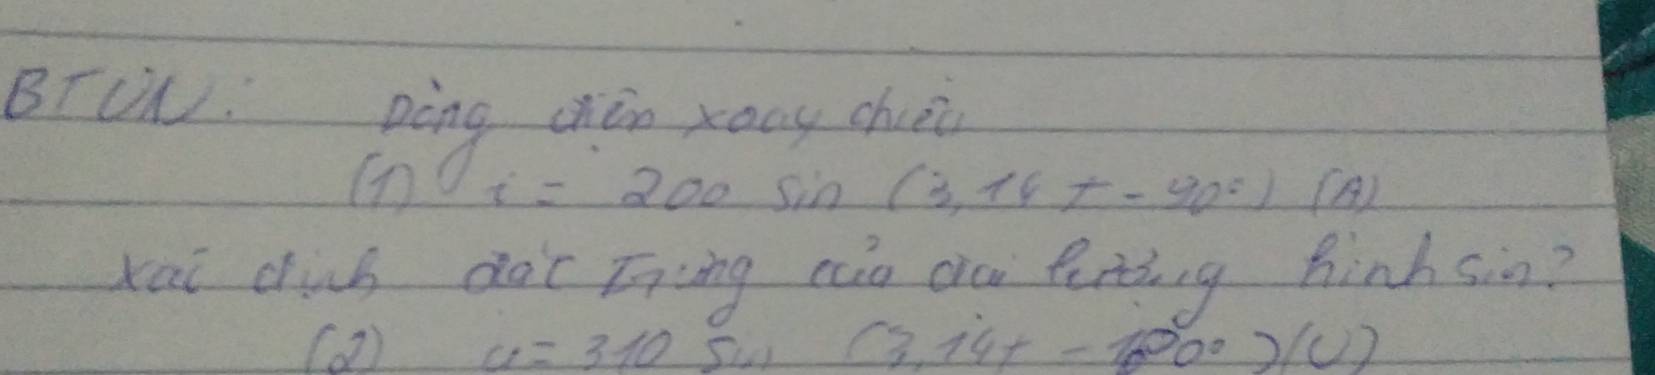 BTVN: Dòng điện xoay chiều
(1) i = 200 sin (3,14t - 90°) (A)
xác định đặc trưng của đại lượng hình sin?
(2) u = 310 sin (3,14t - ) (V)